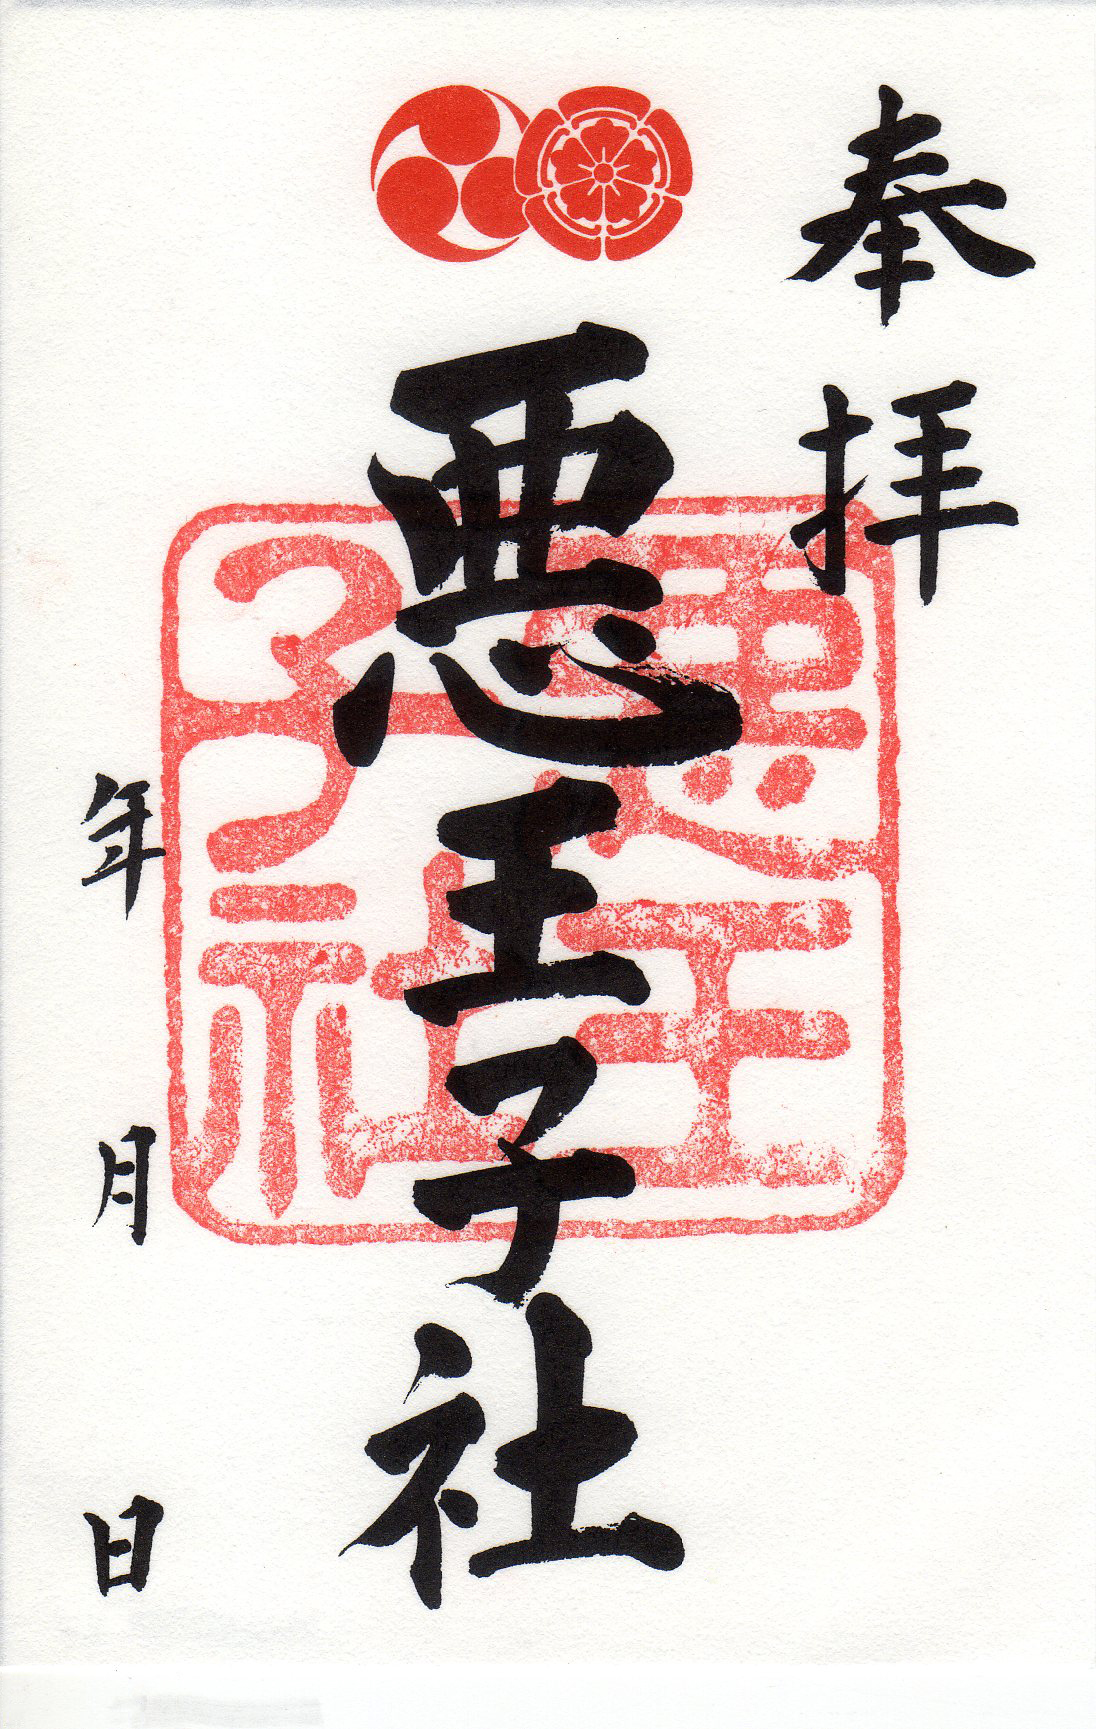 奉拝
悪王子社
悪王
子社
年月日